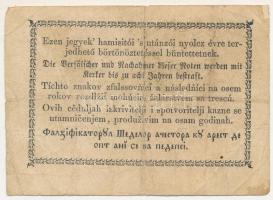 Ezen jegyek' hamisítói 's utánzói nyolcz évre ter-
jedhető börtönöztetéssel büntettetnek.
Die Verfälscher und Nachahmer dieser Noten werden mit
Kerker bis zu acht Jahren bestraft.
Tíchto znakov zfalšovníci a následníci na osem
rokov žalárstvom sa trescú.
Ovih ceduljah izkrivitelji i spotvoritelji kazne se
utamničenjem, produživim na osam godinah.
Фалзіфікаторїи Шеделор ачестора кѹ арест де
опт анї се ва педепсі.